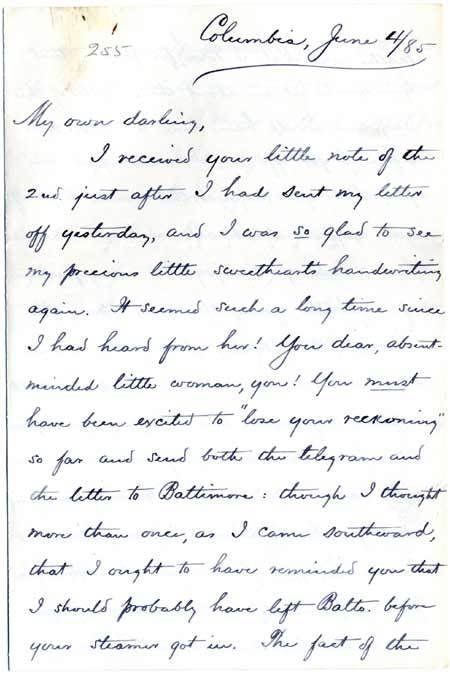 255
Columbia, June 4/85
My own darling,
I received your little note of the
2nd. just after I had sent my letter
off yesterday, and I was so glad to see
my precious little sweetheart's handwriting
again. It seemed such a long time since
I had heard from her! You dear, absent-
minded little woman, you! You must
have been excited to "lose your reckoning"
so far and send both the telegram and
the letter to Baltimore: though I thought
more than once, as I came southward,
that I ought to have reminded you that
I should probably have left Balto. before
your steamer got in. The fact of the